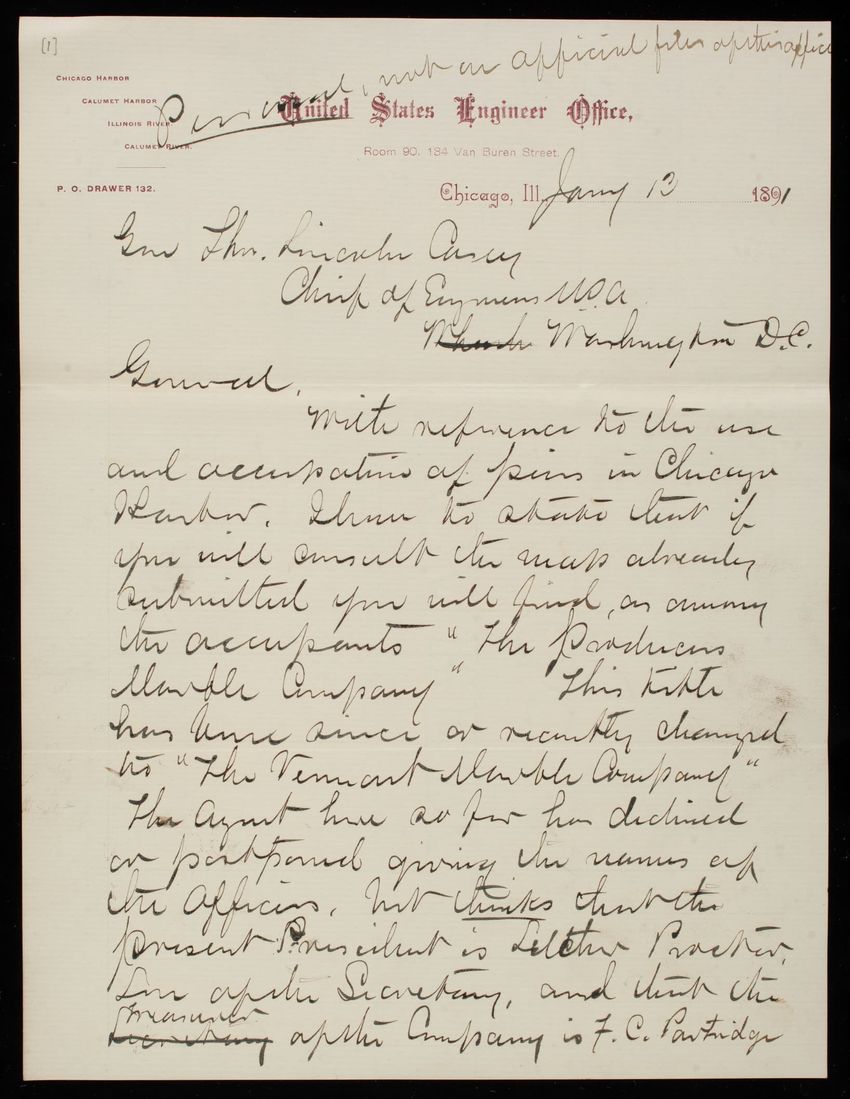 [1]
Personal, not on official files of this office
CHICAGO HARBOR
CALUMET HARBOR
ILLINOIS RIVER
CALUMET RIVER.
United States Engineer Office,
Room 90, 184 Van Buren Street.
P. O. DRAWER 132.
Chicago, Ill. Jany 13 1891
Gen Thos. Lincoln Casey
Chief of Engineers USA
Washington D.C.
General,
With reference to the use
and occupation of piers in Chicago
Harbor, I have to state that if
you will consult the map already
submitted you will find, as among
the occupants "The Producers
Marble Company" This title
has been since or recently changed
to "The Vermont Marble Company"
The Agent here so far has declined
or postponed giving the names of
the Officers, but thinks that the
present President is Fletcher Proctor,
Son of the Secretary, and that the
Treasurer
Secretary of the Company is F. C. Partridge